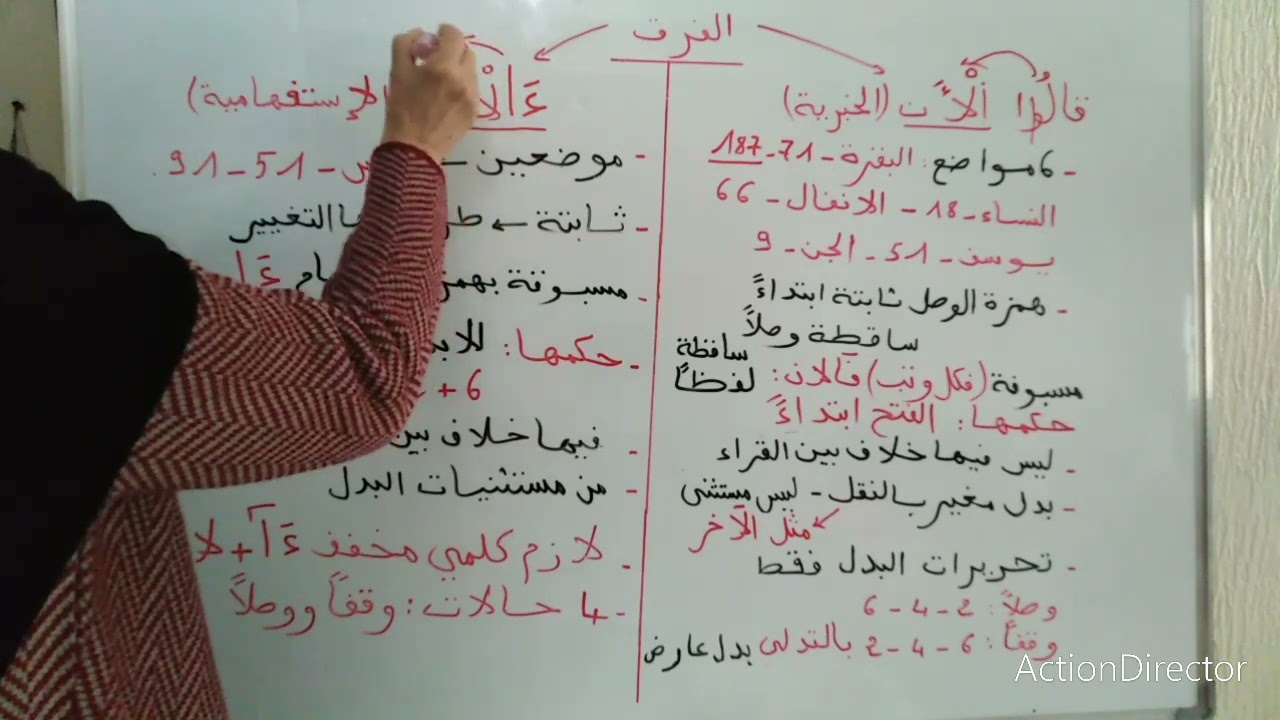 الفرق
قالُوا اْلَٰٔن (الخبرية)
- 6 مواضع: البقرة - 71 - 187
النساء - 18 - الانفال - 66
يوسف - 51 - الجن - 9
- همزة الوصل ثابتة ابتداءً
ساقطة وصلاً
ساقطة
مسبوقة (فكل وتب) فالان: لفظاً
حكمها: الفتح ابتداءً
- ليس فيها خلاف بين القراء
- بدل مغير بالنقل - ليس مستثنى
مثل الآخر
- تحريرات البدل فقط
وصلاً: 2 - 4 - 6
وقفاً: 6 - 4 - 2 بالتدلى بدل عارض
ءَالْا الإستفهامية)
- موضعين - 51 - 91
- ثابتة ← التغيير
- مسبوقة بهمز ءَا
- حكمها:
6 +
- فيها خلاف بين
- من مستثنيات البدل
- لازم كلمي مخفف ءَآ + لا
- 4 حالات: وقفاً ووصلاً
ActionDirector